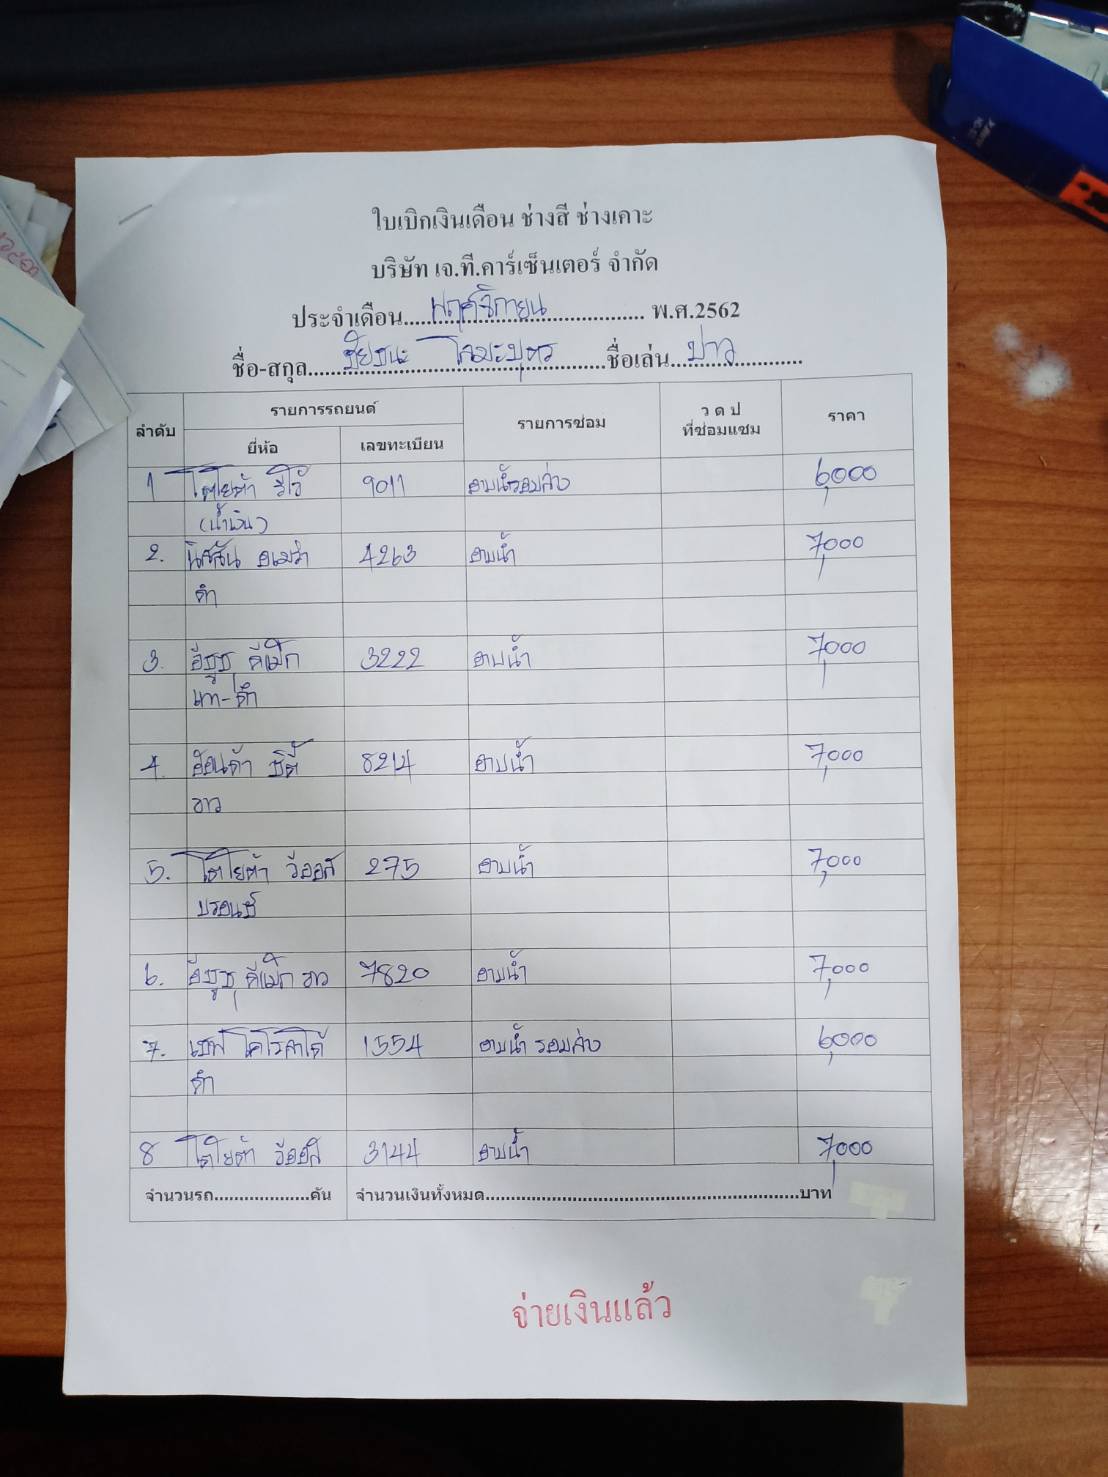 ใบเบิกเงินเดือน ช่างสี ช่างเคาะ
บริษัท เจ.ที.คาร์เซ็นเตอร์ จำกัด
ประจำเดือน....พฤศจิกายน.... พ.ศ.2562
ชื่อ-สกุล....ชัยชนะ....ชื่อเล่น....ปาว....
ลำดับ รายการรถยนต์ รายการซ่อม ว ด ป ที่ซ่อมแซม ราคา
ยี่ห้อ เลขทะเบียน
1 โตโยต้า วีโว้ 9011 อาบน้ำรอบล่าง 6,000
(น้ำเงิน)
2. นิสสัน อเมร่า 4263 อาบน้ำ 7,000
ดำ
3. อีซูซุ ดีแม็ก 3222 อาบน้ำ 7,000
เทา-ดำ
4 ฮอนด้า ซิตี้ 8214 อาบน้ำ 7,000
ขาว
5. โตโยต้า วีออส 275 อาบน้ำ 7,000
บรอนซ์
6. อีซูซุ ดีแม็ก ขาว 7820 อาบน้ำ 7,000
7. เชฟ โคโรลาโด้ 1554 อาบน้ำ รอบล่าง 6,000
ดำ
8 โตโยต้า วีออส 3144 อาบน้ำ 7,000
จำนวนรถ....................คัน จำนวนเงินทั้งหมด....................บาท
จ่ายเงินแล้ว